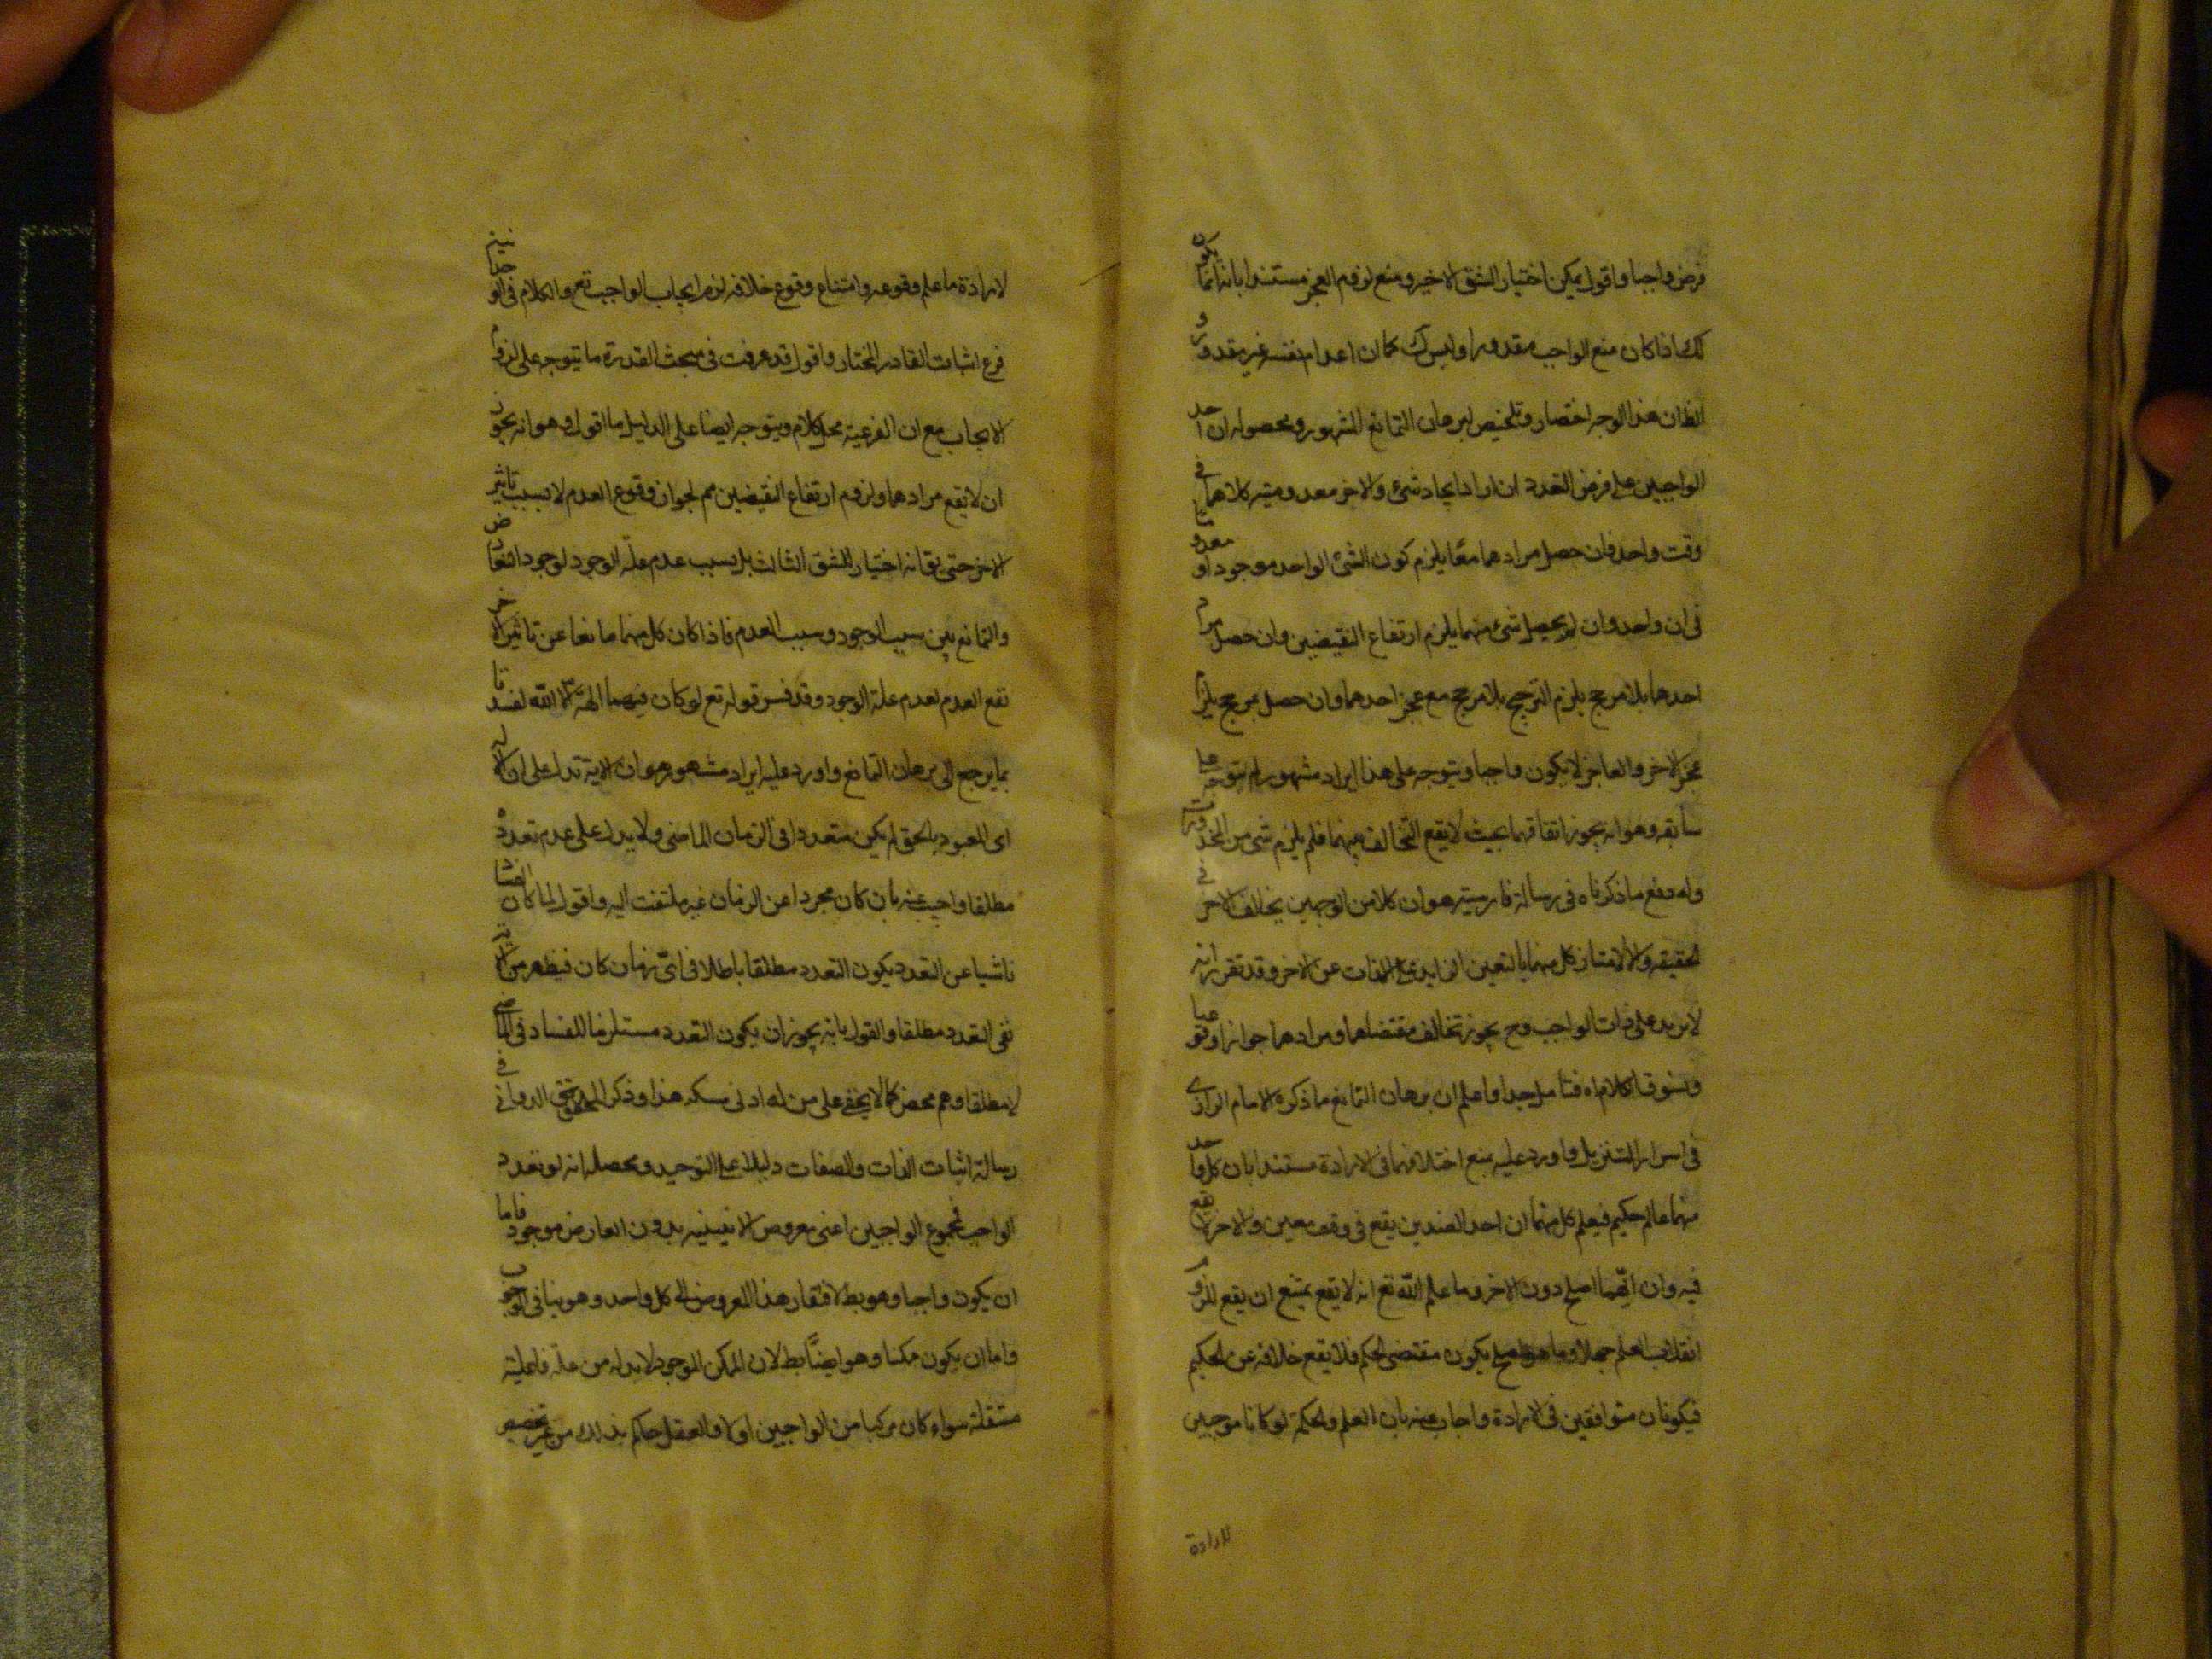 فرض واجبا واقول يمكن اختيار الشق الاخير ومنع لزوم العجز مستندا بانه انما يكون
كك اذا كان منع الواجب مقدورا وليس كك كما ان اعدام نفسه غير مقدور و
الظ ان هذا الوجه اختصار وتلخيص لبرهان التمانع المشهور ومحصوله ان احد
الواجبين على فرض التعدد ان اراد ايجاد شئ والاخر معدوميته كلاهما في
وقت واحد فان حصل مرادهما معًا يلزم كون الشئ الواحد موجودا و معدوما
في ان واحد وان لم يحصل شئ منهما يلزم ارتفاع النقيضين وان حصل مراد
احدهما بلا مرجح يلزم الترجيح بلا مرجح مع عجز احدهما وان حصل بمرجح يلزم
عجز الاخر والعاجز لا يكون واجبا ويتوجه على هذا ايراد مشهور لم يتوجه على
سابقه وهو انه يجوز اتفاقهما بحيث لا يقع التخالف بينهما فلم يلزم شئ من المحذورات
وله دفع ما ذكرناه في رسالة فارسية هو ان كلا من الوجهين يخالف الاخر في
الحقيقه والا لامتاز كل منهما بالتعين الزايد على الذات عن الاخر وقد تقرر انه
لا يزيد على ذات الواجب وح يجوز تخالف مقتضاهما ومرادهما جوازا وقوعيا
وبسوق الكلام اه فتامل جدا واعلم ان برهان التمانع ما ذكره الامام الرازي
في اسرار التنزيل واورد عليه منع اختلافهما في الارادة مستندا بان كل واحد
منهما عالم حكيم فيعلم كل منهما ان احد الضدين يقع في وقت معين والاخر لا يقع
فيه وان ايهما اصلح دون الاخر وما علم الله تع انه لا يقع يمتنع ان يقع للزوم
انقلاب العلم جهلا وما هو اصلح يكون مقتضى الحكم فلا يقع خلافه عن الحكيم
فيكونان متوافقين في الارادة واجاب عنه بان العلم والحكمة لو كانا موجبين
للارادة
لارادة ما علم وقوعه وامتناع وقوع خلافه لزم ايجاب الواجب تع والكلام في الوحدانية
فرع اثبات القادر المختار واقول قد عرفت في مبحث القدرة ما يتوجه على لزوم
الايجاب مع ان الفرعية محل كلام ويتوجه ايضا على الدليل ما اقول وهو انه يجوز
ان لا يقع مرادهما ولزوم ارتفاع النقيضين مم لجواز وقوع العدم لا بسبب تاثير
الاخر حتى يق انه اختيار للشق الثالث بل بسبب عدم علة الوجود لوجود التعارض
والتمانع بين سبب الوجود وسبب العدم فاذا كان كل منهما مانعا عن تاثير الاخر
نقع العدم لعدم علة الوجود وقد فسر قوله تع لو كان فيهما الهة الا الله لفسدتا
بما يرجع الى برهان التمانع واورد عليه ايراد مشهور هو ان الاية تدل على ان الاله
اى المعبود بالحق لم يكن متعددا في الزمان الماضي ولا يدل على عدم تعدده
مطلقا واجيب عنه بان كان مجردا عن الزمان غير ملتفت اليه واقول لما كان الفساد
ناشيا عن التعدد يكون التعدد مطلقا باطلا في اىّ زمان كان فيظهر من الاية
نفى التعدد مطلقا والقول بانه يجوز ان يكون التعدد مستلزما للفساد في الماضي
لا مطلقا وهم محض كما لا يخفى على من له ادنى مسكه هذا وذكر المحقق الدواني في
رسالة اثبات الذات والصفات دليلا على التوحيد ومحصله انه لو تعدد
الواجب فمجموع الواجبين اعنى معروض الاثنينيه بدون العارض موجود فاما
ان يكون واجبا وهو بط لافتقار هذا المعروض الى كل واحد وهو ينافى الوجوب
واما ان يكون ممكنا وهو ايضًا بط لان الممكن الموجود لا بد له من علة فاعلية
مستقلة سواء كان مركبا من الواجبين اولا والعقل حاكم بذلك من غير تخصيص